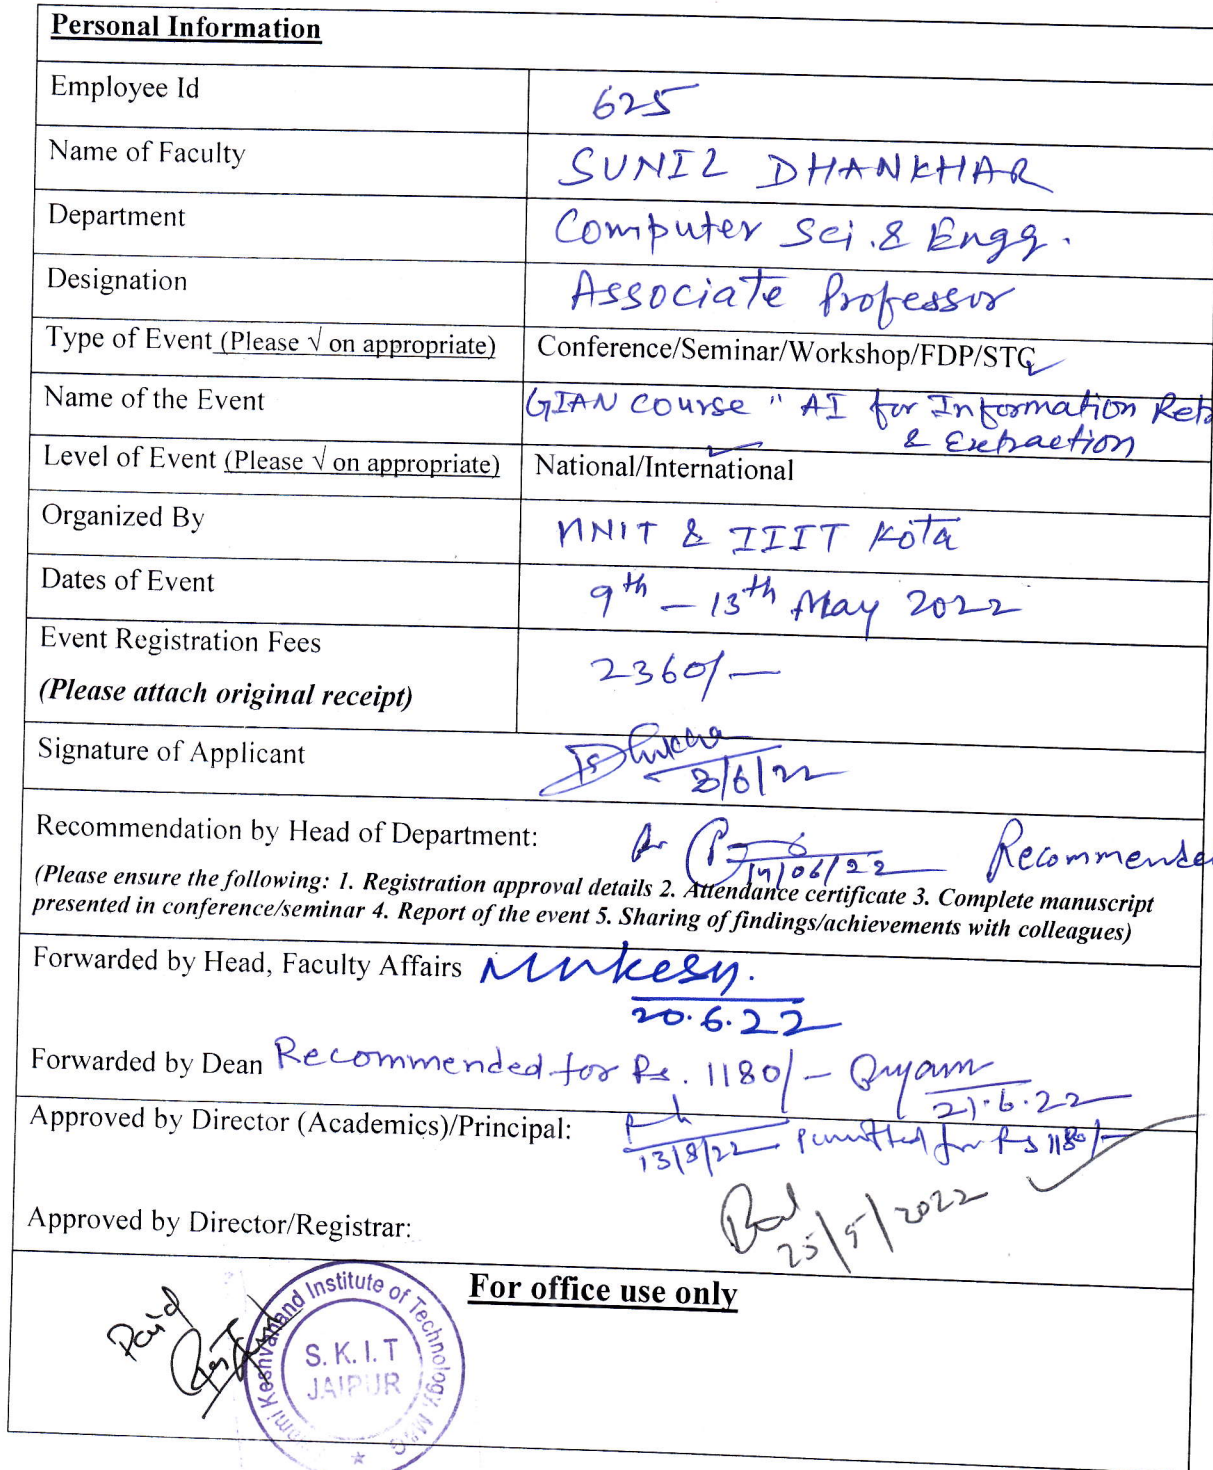 Personal Information
Employee Id 625
Name of Faculty SUNIL DHANKHAR
Department Computer Sci. & Engg.
Designation Associate Professor
Type of Event (Please √ on appropriate) Conference/Seminar/Workshop/FDP/STC
Name of the Event GIAN Course " AI for Information Ret
& Extraction
Level of Event (Please √ on appropriate) National/International
Organized By MNIT & IIIT Kota
Dates of Event 9th – 13th May 2022
Event Registration Fees 2360/-
(Please attach original receipt)
Signature of Applicant
8/6/22
Recommendation by Head of Department: Recommended
14/06/22
(Please ensure the following: 1. Registration approval details 2. Attendance certificate 3. Complete manuscript
presented in conference/seminar 4. Report of the event 5. Sharing of findings/achievements with colleagues)
Forwarded by Head, Faculty Affairs Mukesh.
20.6.22
Forwarded by Dean Recommended for Rs. 1180/-
21.6.22
Approved by Director (Academics)/Principal:
13/8/22 permitted for Rs 1180/-
Approved by Director/Registrar:
25/5/2022
For office use only
Paid
Swami Keshvanand Institute of Technology, M&G
S. K. I. T
JAIPUR